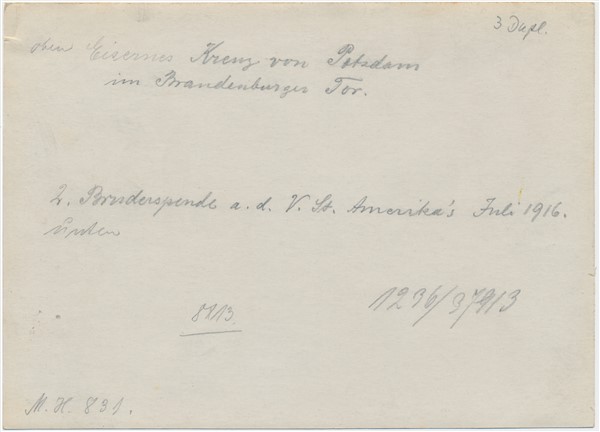 3 Dupl.
oben Eisernes Kreuz von Potsdam
im Brandenburger Tor.
2. Bruderspende a. d. V. St. Amerika's Juli 1916.
Unten
1236/37913
8213
M. H. 831.